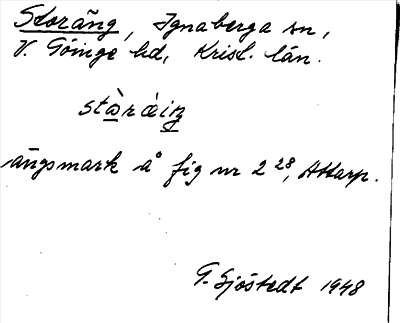 Storäng, Ignaberga sn,
V. Göinge hd, Krist. län.
stàràiŋ
ängsmark å fig nr 2 28, Attarp.
G. Sjöstedt 1948